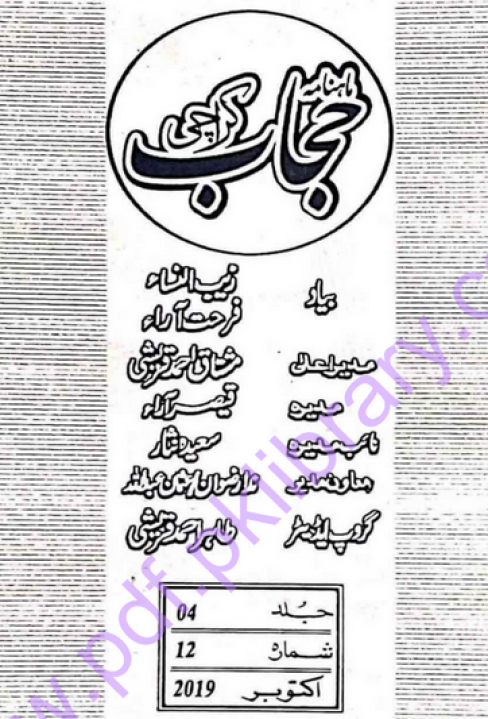 ماہنامہ
حجاب کراچی
بیاد زیب النساء
فرحت آراء
مدیر اعلیٰ مشتاق احمد قریشی
مدیرہ قیصر آراء
نائب مدیرہ سعیدہ نثار
معاون مدیر
گروپ ایڈیٹر طاہر احمد قریشی
جلد 04
شمارہ 12
اکتوبر 2019
www.pdf.pklibrary.co